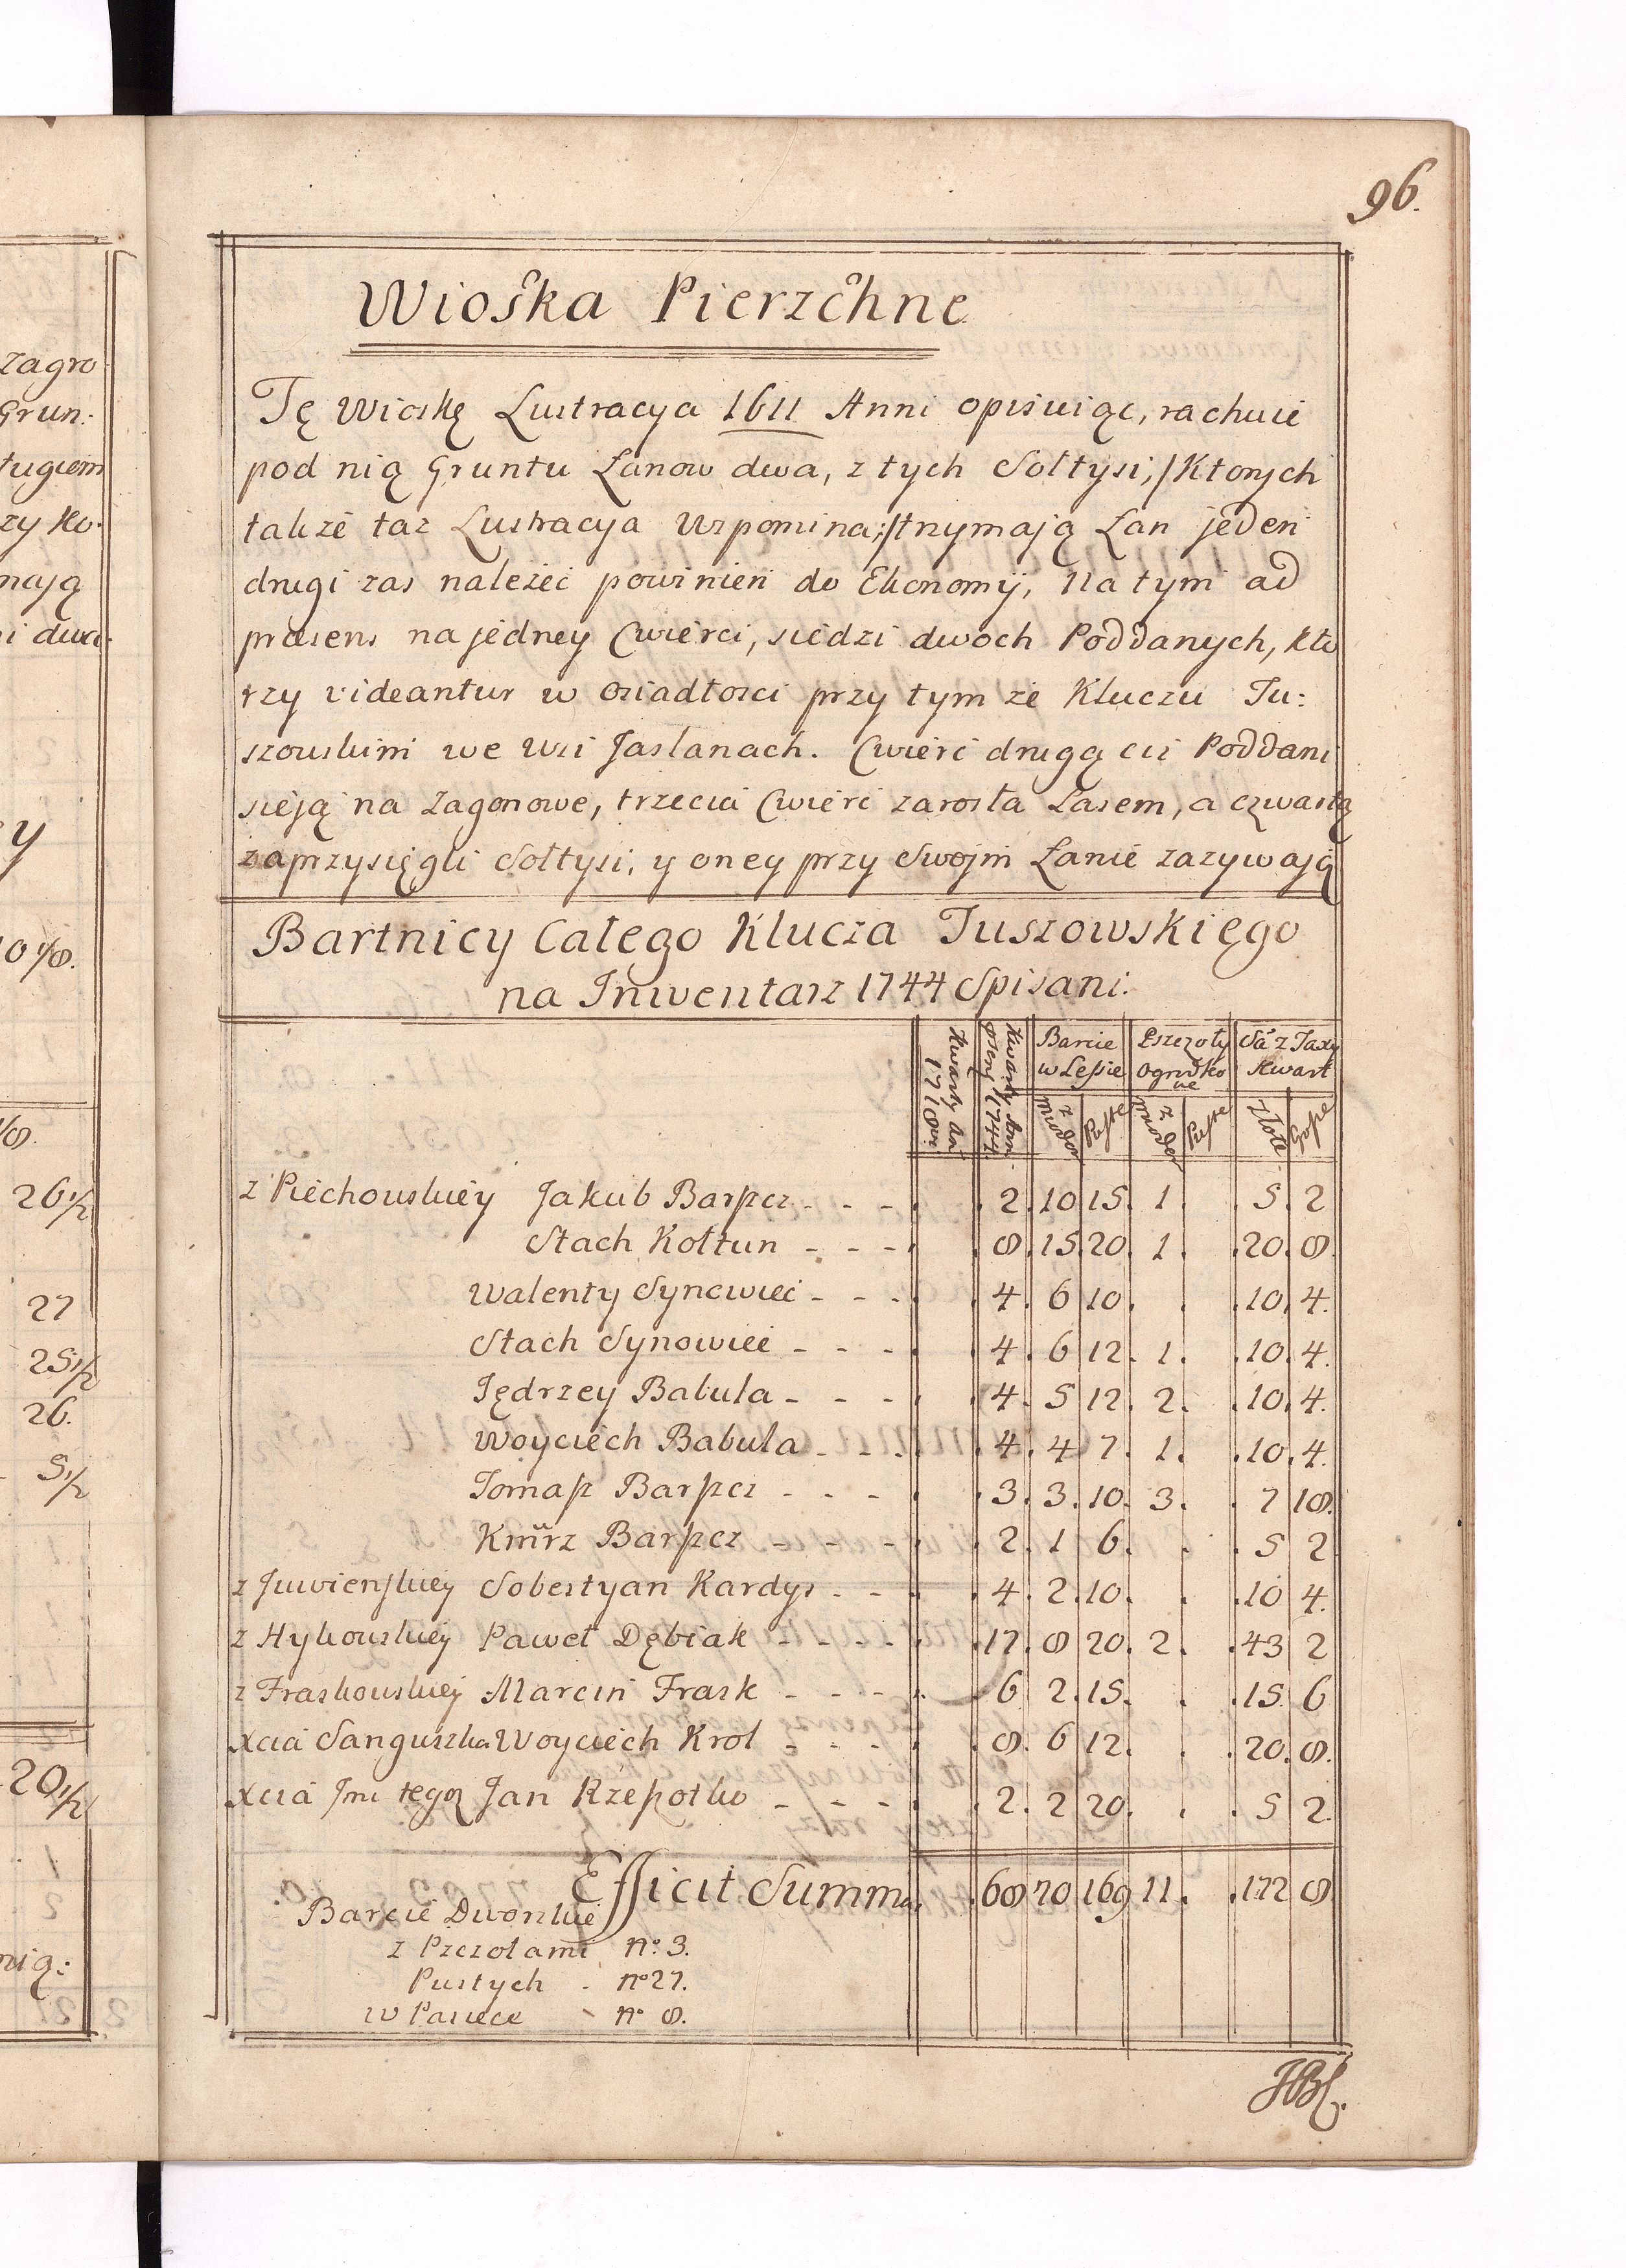 96.
Wioska Pierzchne
Tę Wioskę Lustracya 1611 Anni opisuiąc, rachuie
pod nią Gruntu Łanow dwa, z tych Sołtysi, /Ktorych
takze taz Lustracya Wspomina:/ trzymaią Łan jeden
drugi zas należeć powinien do Ekonomÿi, Na tym ad
præsens na jedney Cwierci, siedzi dwoch Poddanych, kto
rzy videantur w Osiadłosci przy tym ze Kluczu Tu:
szowskim we Wsi Jaslanach. Cwierc drugą cis Poddani
sieją na Zagonowe, trzecia Cwierc zarosła Lasem, a czwartą
zaprzysięgli Sołtysi, y oney przy Swojm Łanie zazywają
Bartnicy Całego Klucza Tuszowskięgo
na Inwentarz 1744 Spisani.
Kwarty An 1710mi
Kwarty Anni præsen 1744
Barcie w Lesie
Pszczoły Ogrodkowe
Sa z Taxy Kwart
z miodem Puste z miodem Puste Złote Grosze
z Piechowskiey Jakub Barszcz - - - 2. 10 15. 1. 5. 2
Stach Kołtun - - - 8. 15. 20. 1. 20. 8.
Walenty Synowiec - - - 4. 6 10. . 10. 4.
Stach Synowiec - - - 4. 6 12. 1. 10. 4.
Jędrzey Babula - - - 4. 5 12. 2. 10. 4.
Woyciech Babula - - - 4. 4 7. 1. 10. 4.
Tomasz Barszcz - - - 3. 3. 10. 3. 7 18.
Kmrz Barszcz - - - 2. 1 6. . 5 2
Sobestyan Kardys - - - 4. 2. 10. . 10 4.
z Hykowskiey Paweł Dębiak - - - 17. 8 20. 2. 43 2
z Fraskowskiey Marcin Frask - - - 6 2. 15. . 15. 6
xcia Sanguszka Woyciech Krol - - - 8. 6 12. . 20. 8.
xcia Jmci tegoz Jan Rzepołko - - - 2. 2 20. . 5 2.
Efficit Summa. 68 70 169 11. 172 8
Barcie Dworskie
z Pszczołami No 3.
Pustych - No 27.
w Pasiece - No 8.
zagro
Grun:
ługiem
zy ko:
mają
i dwa:
y
10 1/8.
1/8.
26 1/2
27
25 1/2
26.
5 1/2
20 1/2
nią: